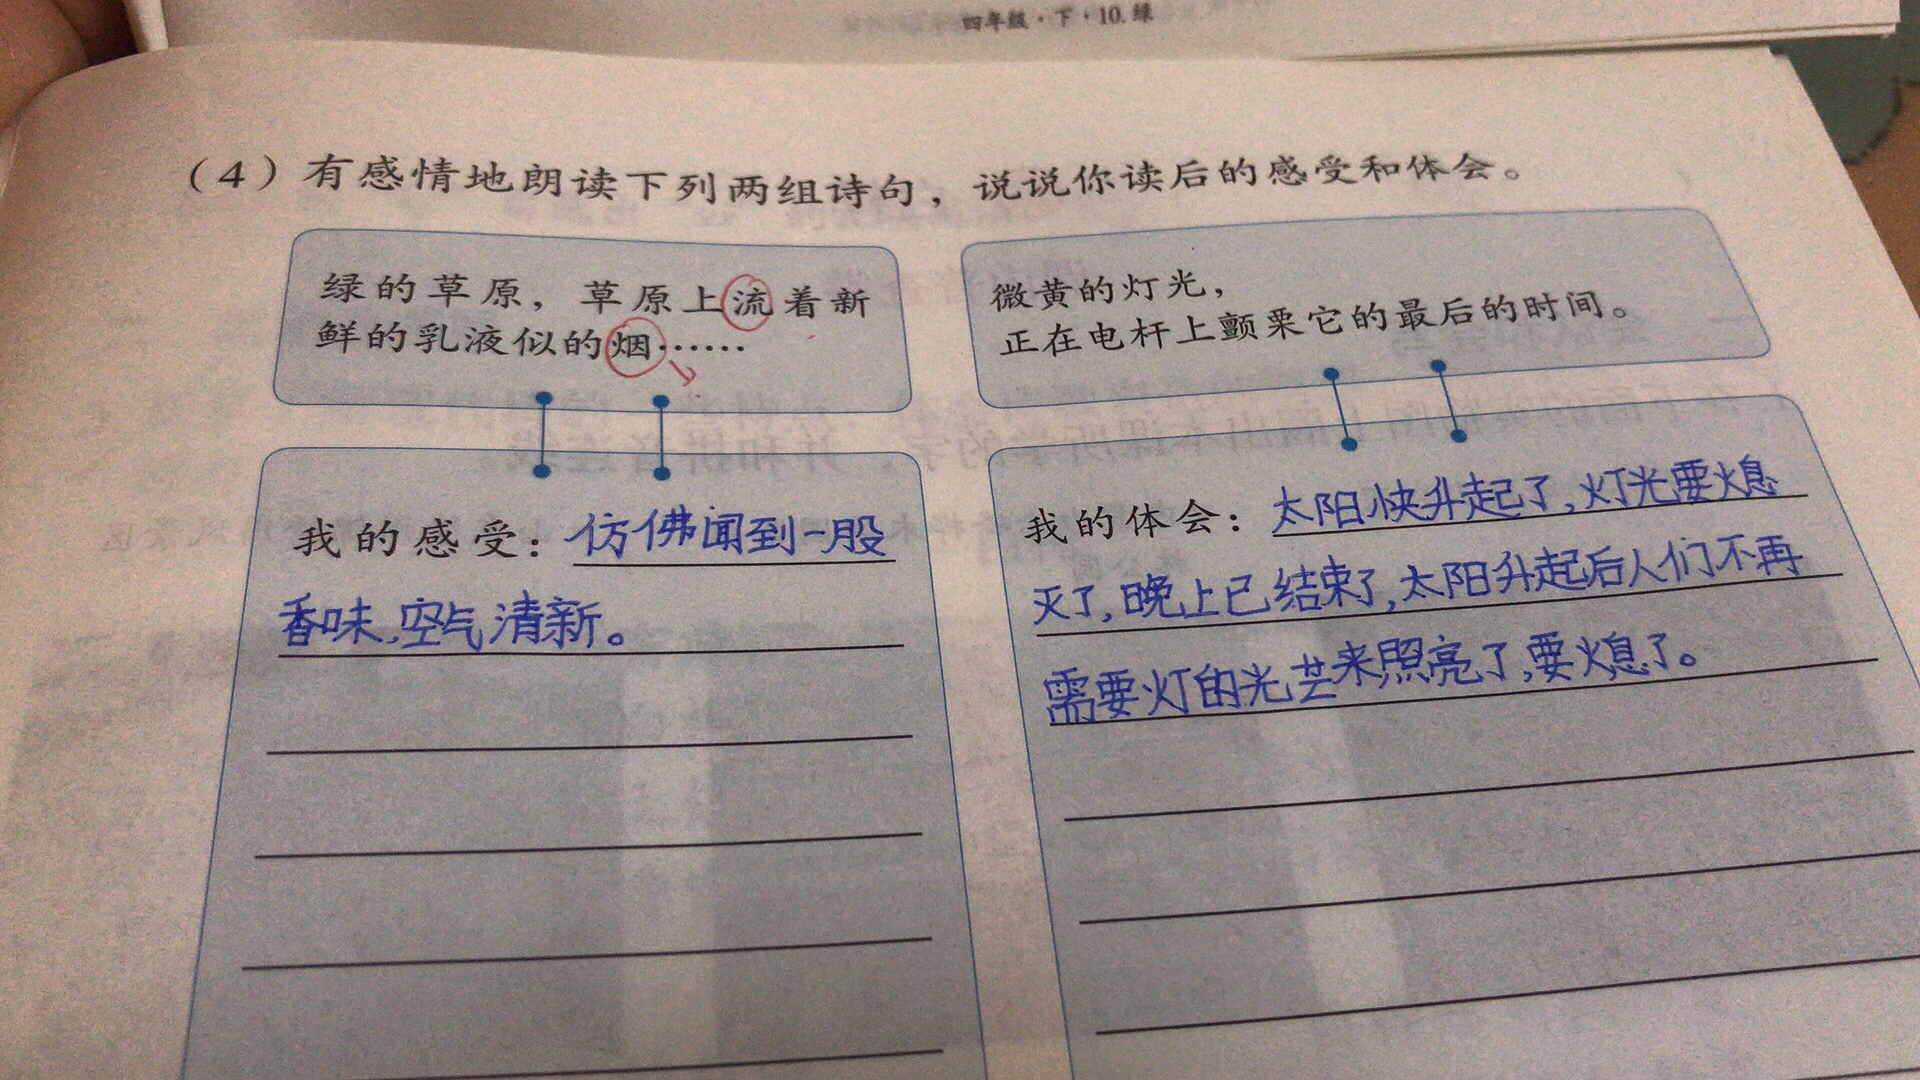 四年级·下·10.绿
（4）有感情地朗读下列两组诗句，说说你读后的感受和体会。
绿的草原，草原上流着新
鲜的乳液似的烟……
我的感受：仿佛闻到一股
香味,空气清新。
微黄的灯光，
正在电杆上颤栗它的最后的时间。
我的体会：太阳快升起了,灯光要熄
灭了,晚上已结束了,太阳升起后人们不再
需要灯的光芒来照亮了,要熄了。